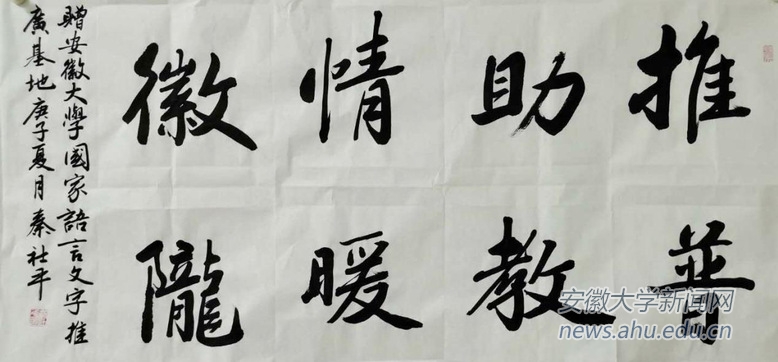 推普
助教
情暖
徽隴
贈安徽大學國家語言文字推
廣基地庚子夏月秦社平
安徽大学新闻网
news.ahu.edu.cn